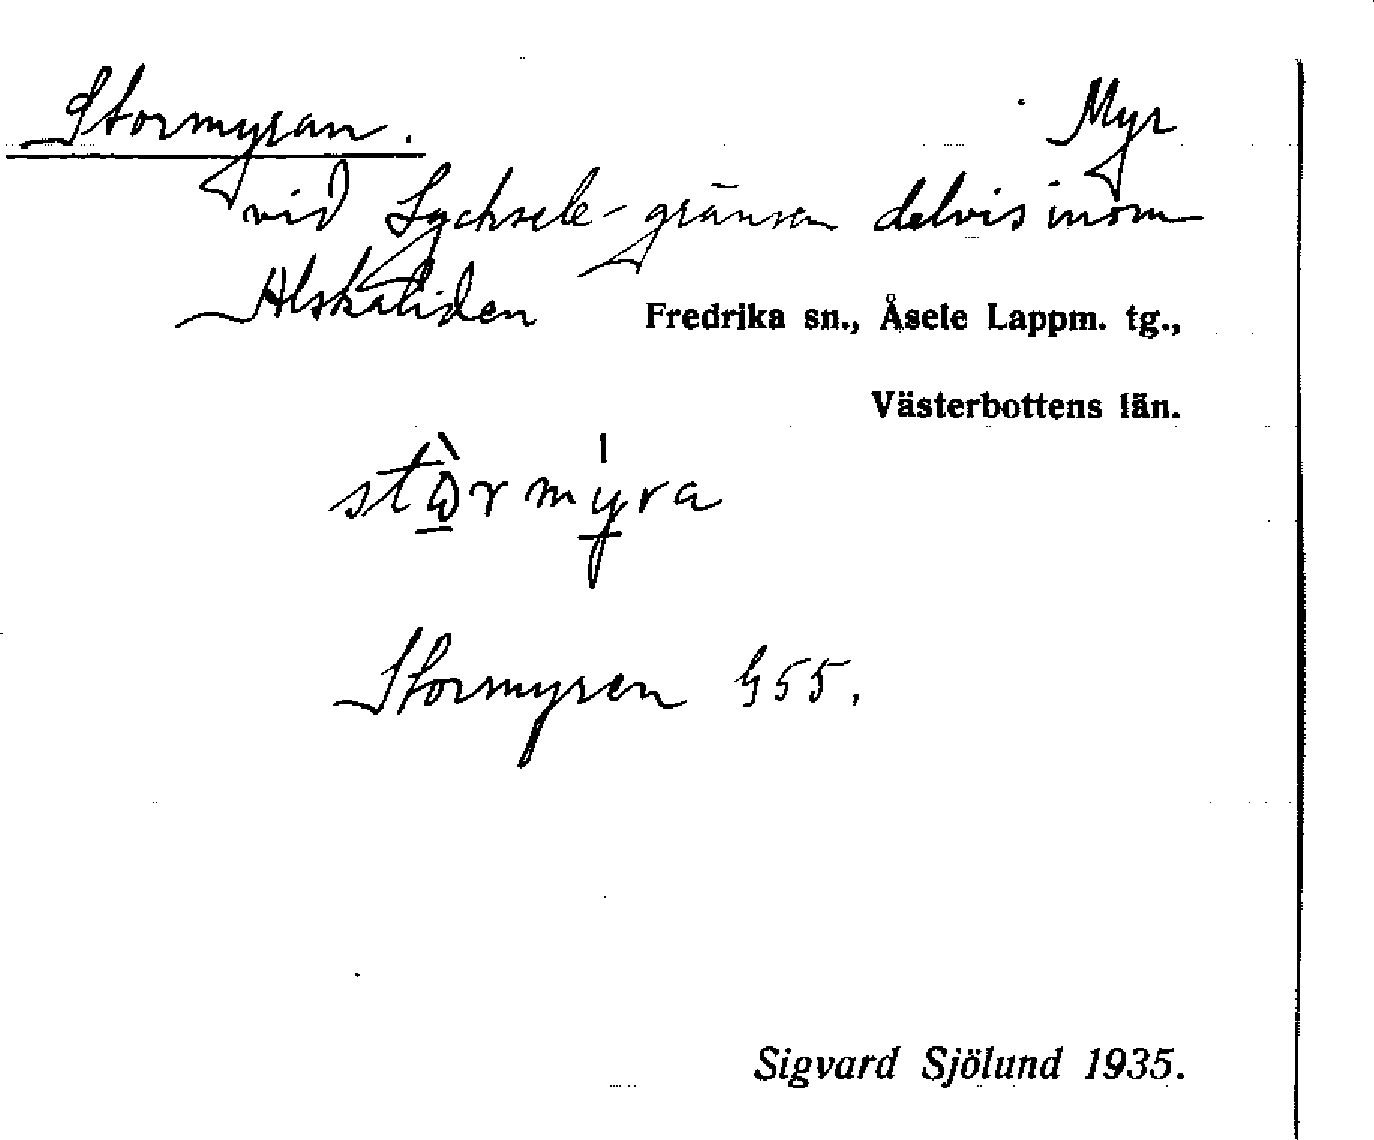 Stormyran. Myr
vid Lycksele-gränsen delvis inom
Alskaliden Fredrika sn., Åsele Lappm. tg.,
Västerbottens län.
stòrmyra
Stormyren G55.
Sigvard Sjölund 1935.